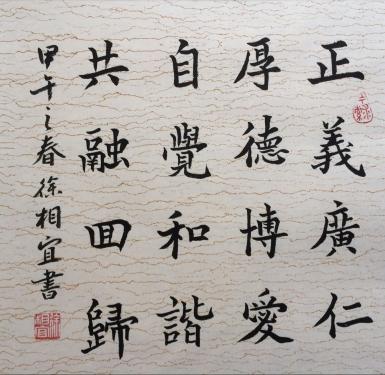 正義廣仁
厚德博愛
自覺和諧
共融回歸
甲午之春徐相宜書